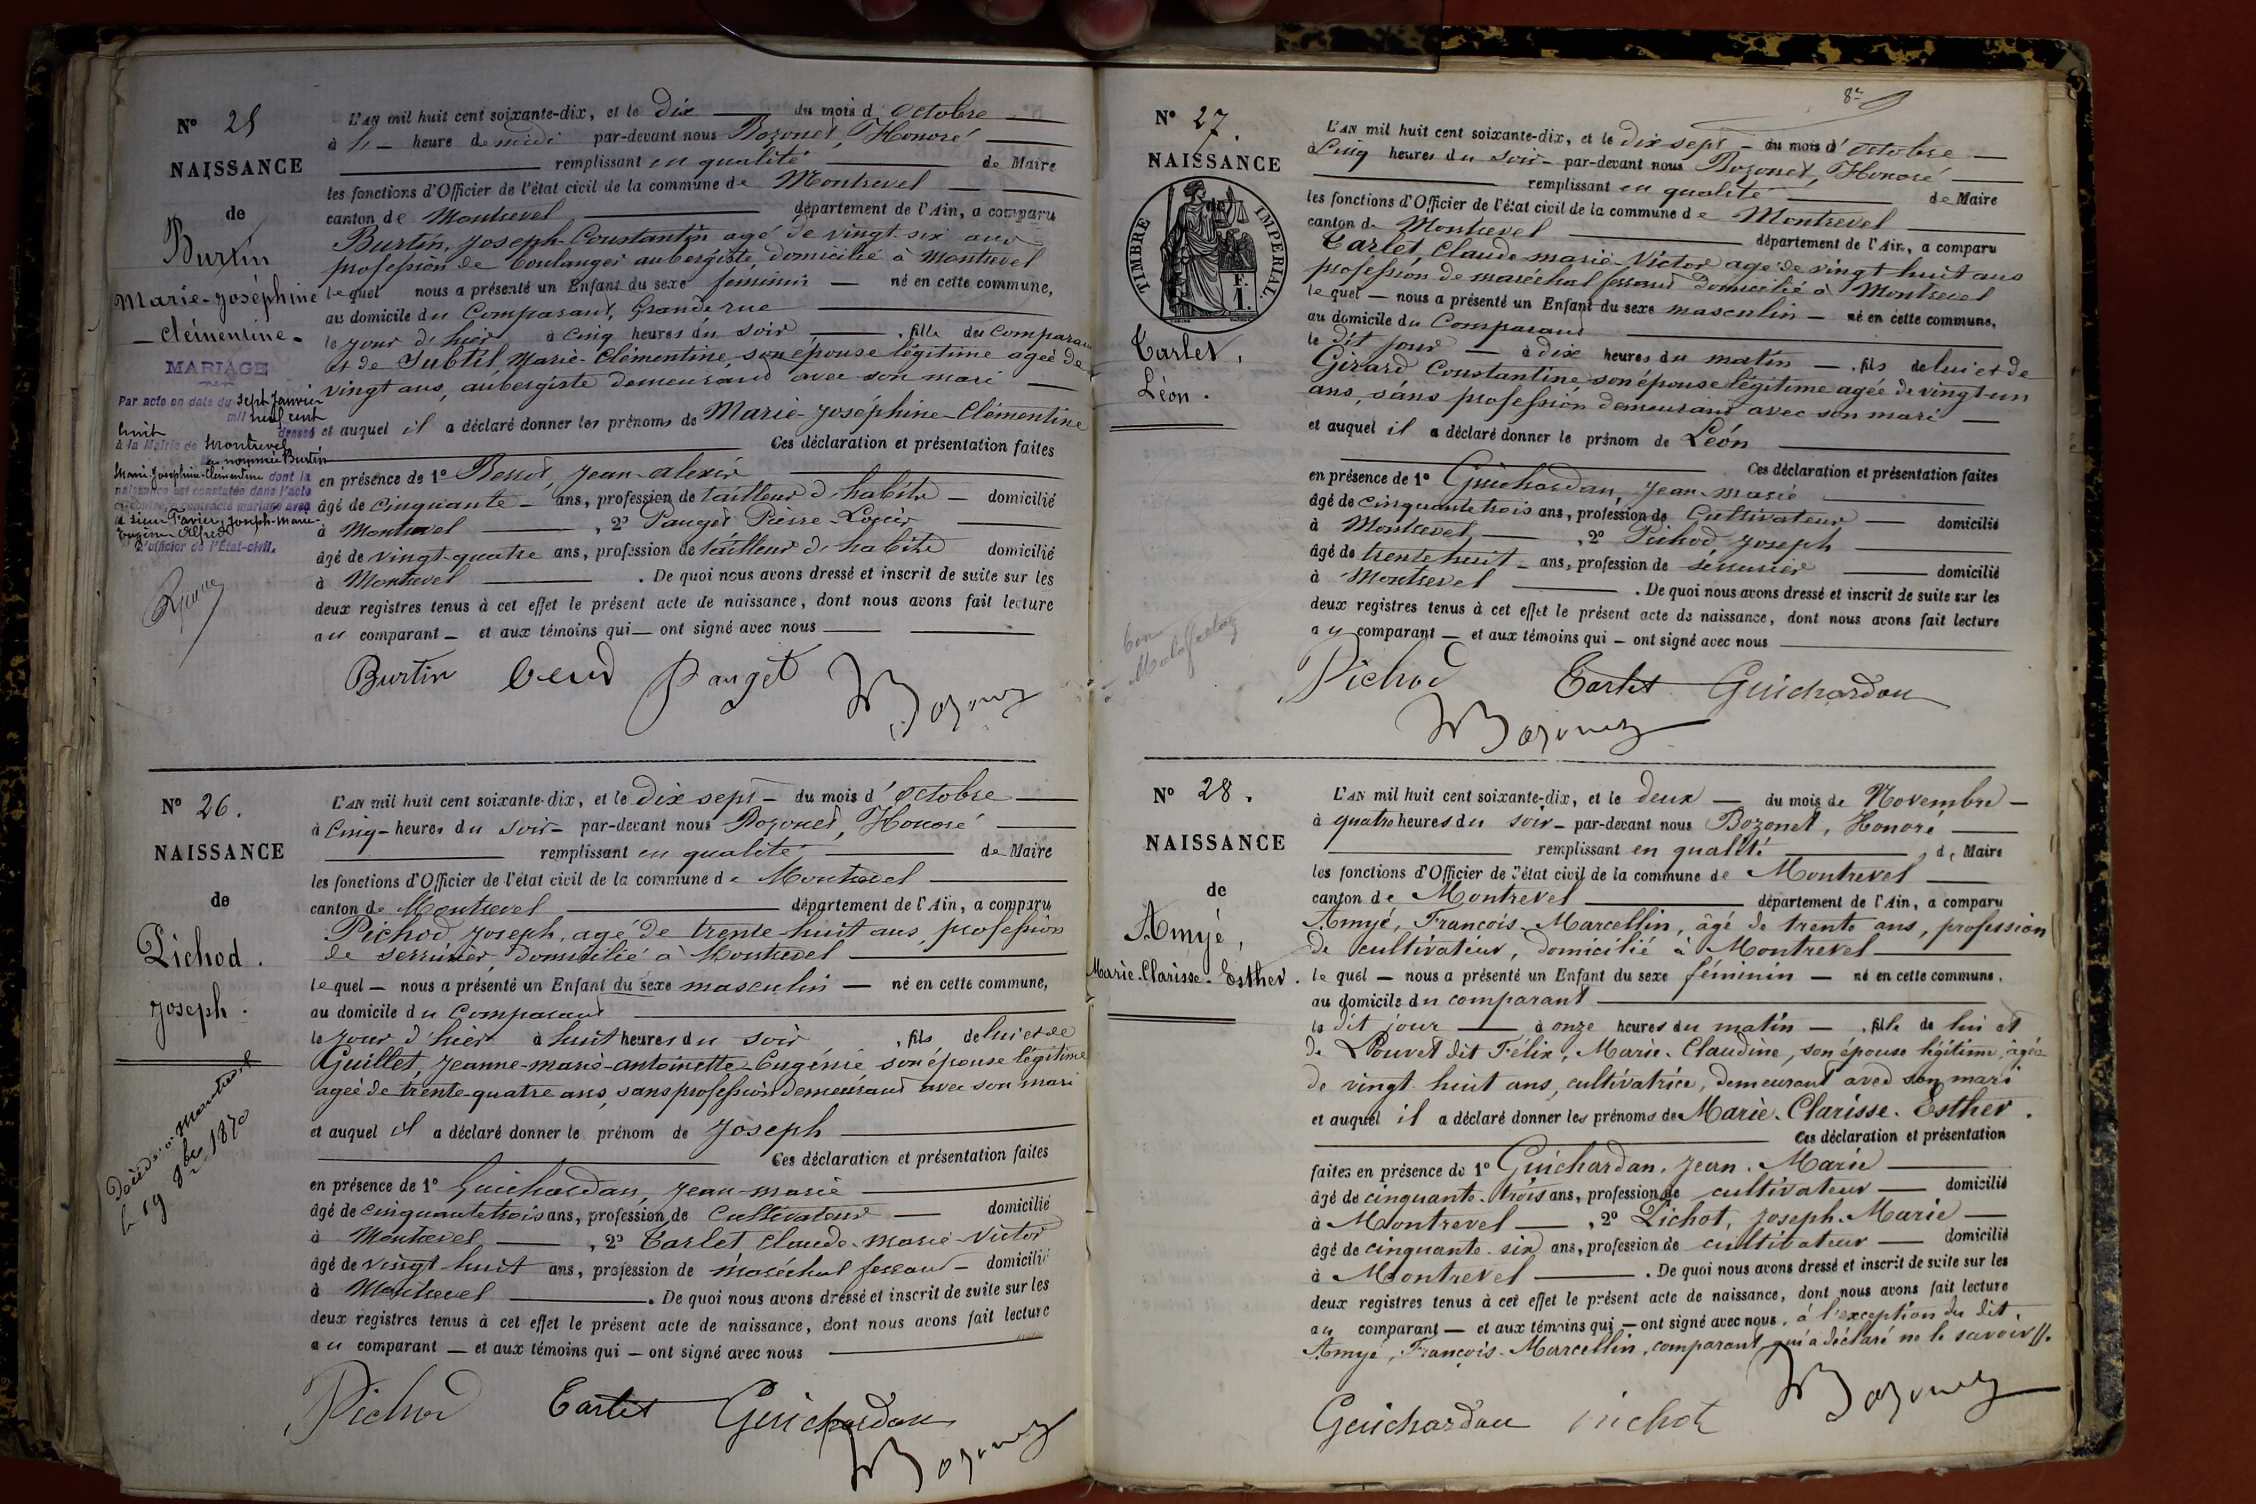 N° 25
NAISSANCE
de
Burtin
Marie-Joséphine
Clémentine.
MARIAGE
Par acte en date du sept Janvier
mil neuf cent
huit dressé
à la Mairie de Montrevel
la nommée Burtin
Marie Joséphine-Clémentine dont la
naissance est constatée dans l'acte
ci-contre, a contracté mariage avec
le sieur Favier, Joseph-Marie-
Eugène Alfred
L'officier de l'État-civil.
L'AN mil huit cent soixante-dix, et le dix du mois d'octobre
à heure de midi par-devant nous Bozonet, Honoré
remplissant en qualité de Maire
les fonctions d'Officier de l'état civil de la commune de Montrevel
canton de Montrevel département de l'Ain, a comparu
Burtin, Joseph-Constantin agé de vingt-six ans
profession de boulanger aubergiste domicilié à Montrevel
lequel nous a présenté un Enfant du sexe féminin né en cette commune,
au domicile du Comparant, Grande rue
le jour d'hier à cinq heures du soir, fille du Comparant
et de Subtil, Marie-Clémentine, son épouse légitime agée de
vingt ans, aubergiste demeurant avec son mari
et auquel il a déclaré donner les prénoms de Marie-Joséphine-Clémentine
Ces déclaration et présentation faites
en présence de 1° Jean-Alexis
âgé de cinquante ans, profession de tailleur d'habits domicilié
à Montrevel, 2° Pauget Pierre
âgé de vingt-quatre ans, profession de tailleur d'habits domicilié
à Montrevel. De quoi nous avons dressé et inscrit de suite sur les
deux registres tenus à cet effet le présent acte de naissance, dont nous avons fait lecture
au comparant et aux témoins qui ont signé avec nous
Burtin Pauget Bozonet
N° 26.
NAISSANCE
de
Pichod.
Joseph.
Décédé à Montrevel
le 19 8bre 1870
L'AN mil huit cent soixante-dix, et le dix sept du mois d'octobre
à cinq heures du soir par-devant nous Bozonet, Honoré
remplissant en qualité de Maire
les fonctions d'Officier de l'état civil de la commune de Montrevel
canton de Montrevel département de l'Ain, a comparu
Pichod, Joseph, agé de trente-huit ans, profession
de serrurier, domicilié à Montrevel
lequel nous a présenté un Enfant du sexe masculin né en cette commune,
au domicile du Comparant
le jour d'hier à huit heures du soir, fils de lui et de
Guillet, Jeanne-Marie-Antoinette-Eugénie son épouse légitime
agée de trente-quatre ans, sans profession demeurant avec son mari
et auquel il a déclaré donner le prénom de Joseph
Ces déclaration et présentation faites
en présence de 1° Guichardan, Jean-Marie
âgé de cinquante trois ans, profession de Cultivateur domicilié
à Montrevel, 2° Carlet, Claude-Marie-Victor
âgé de vingt-huit ans, profession de maréchal ferrant domicilié
à Montrevel. De quoi nous avons dressé et inscrit de suite sur les
deux registres tenus à cet effet le présent acte de naissance, dont nous avons fait lecture
au comparant et aux témoins qui ont signé avec nous
Pichod Carlet Guichardan
Bozonet
8
N° 27.
NAISSANCE
de
TIMBRE IMPERIAL.
F.
1.
Carlet,
Léon.
L'AN mil huit cent soixante-dix, et le dix sept du mois d'octobre
à cinq heures du soir par-devant nous Bozonet, Honoré
remplissant en qualité de Maire
les fonctions d'Officier de l'état civil de la commune de Montrevel
canton de Montrevel département de l'Ain, a comparu
Carlet, Claude-Marie-Victor agé de vingt huit ans
profession de maréchal ferrant domicilié à Montrevel
lequel nous a présenté un Enfant du sexe masculin né en cette commune,
au domicile du Comparant
le dit jour à dix heures du matin, fils de lui et de
Girard Constantine, son épouse légitime agée de vingt-un
ans, sans profession demeurant avec son mari
et auquel il a déclaré donner le prénom de Léon
Ces déclaration et présentation faites
en présence de 1° Guichardan, Jean-Marie
âgé de cinquante trois ans, profession de Cultivateur domicilié
à Montrevel, 2° Pichod, Joseph
âgé de trente huit ans, profession de serrurier domicilié
à Montrevel. De quoi nous avons dressé et inscrit de suite sur les
deux registres tenus à cet effet le présent acte de naissance, dont nous avons fait lecture
au comparant et aux témoins qui ont signé avec nous
Pichod Carlet Guichardan
Bozonet
N° 28.
NAISSANCE
de
Amyé,
Marie-Clarisse-Esther.
L'AN mil huit cent soixante-dix, et le deux du mois de Novembre
à quatre heures du soir par-devant nous Bozonet, Honoré
remplissant en qualité de Maire
les fonctions d'Officier de l'état civil de la commune de Montrevel
canton de Montrevel département de l'Ain, a comparu
Amyé, François-Marcellin, âgé de trente ans, profession
de cultivateur, domicilié à Montrevel
lequel nous a présenté un Enfant du sexe féminin né en cette commune.
au domicile du comparant
le dit jour à onze heures du matin, fille de lui et
de Pouvet dit Félix, Marie-Claudine, son épouse légitime, âgée
de vingt-huit ans, cultivatrice, demeurant avec son mari
et auquel il a déclaré donner les prénoms de Marie-Clarisse-Esther.
Ces déclaration et présentation
faites en présence de 1° Guichardan, Jean-Marie
âgé de cinquante-trois ans, profession de cultivateur domicilié
à Montrevel, 2° Pichot, Joseph-Marie
âgé de cinquante-six ans, profession de cultivateur domicilié
à Montrevel. De quoi nous avons dressé et inscrit de suite sur les
deux registres tenus à cet effet le présent acte de naissance, dont nous avons fait lecture
au comparant et aux témoins qui ont signé avec nous, à l'exception du dit
Amyé, François-Marcellin, comparant qui a déclaré ne le savoir.
Guichardan Pichot Bozonet